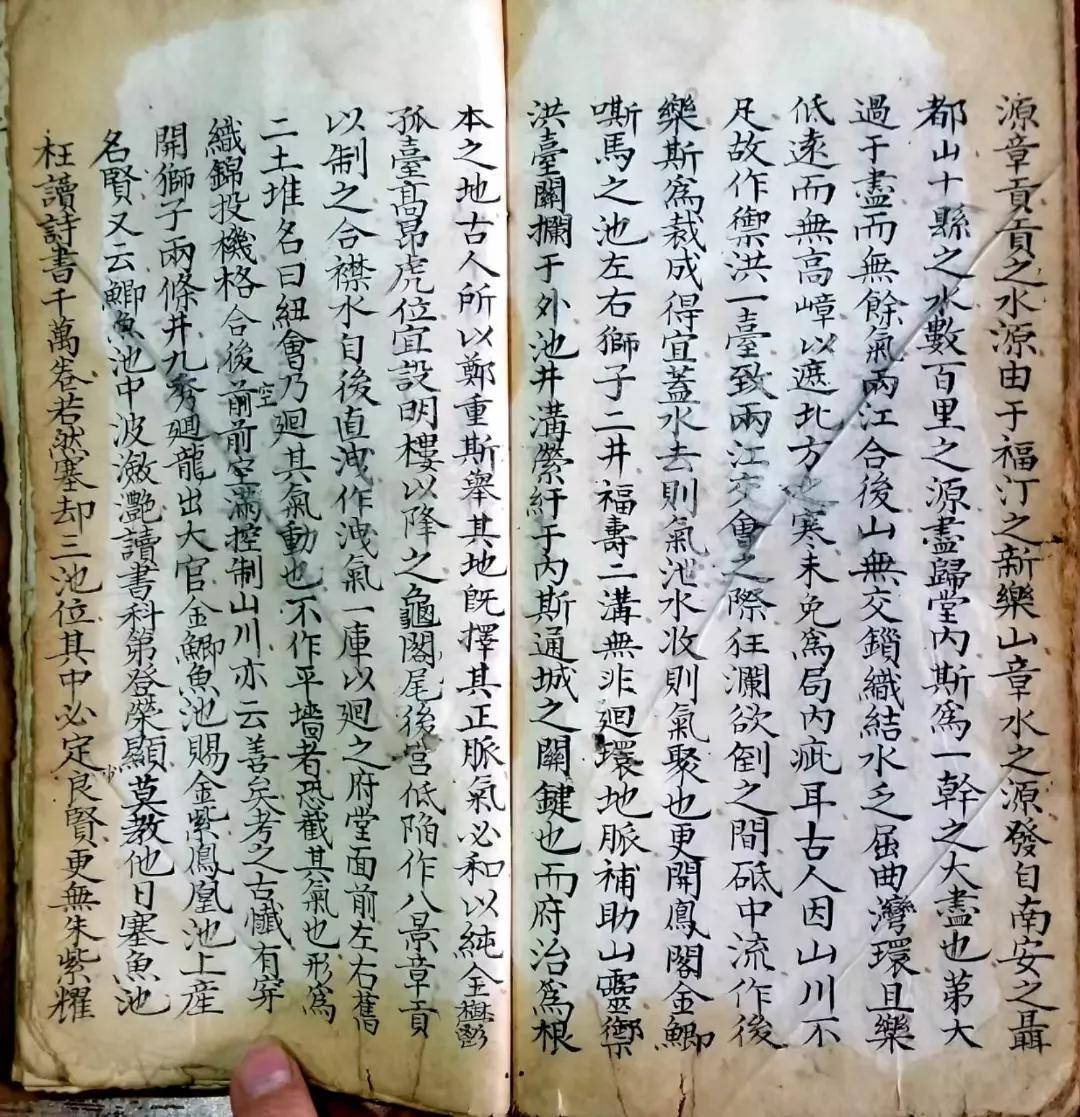 源章貢貢之水源由于福汀之新樂山章水之源發自南安之聶
都山十縣之水數百里之源盡歸堂內斯爲一幹之大盡也第大
過于盡而無餘氣兩江合後山無交鎖織結水乏屈曲灣環且樂
低遠而無高嶂以遮北方之寒未免爲局內疵耳古人因山川不
足故作禦洪一臺致兩江交會之際狂瀾欲倒之間砥中流作後
樂斯爲裁成得宜蓋水去則氣泄水收則氣聚也更開鳳閣金鯽
嘶馬之池左右獅子二井福壽二溝無非廻環地脈補助山靈禦
洪臺關攔于外池井溝縈紆于內斯通城之關鍵也而府治爲根
本之地古人所以鄭重斯舉其地既擇其正脈氣必和以純金欝
孤臺高昂虎位宜設明樓以降之龜閣尾後宮低陷作八景章貢
以制之合襟水自後直洩作洩氣一庫以廻之府堂面前左右舊
二土堆名曰紐會乃廻其氣動也不作平墻者恐截其氣也形爲
織錦投機格合後前前空滿控制山川亦云善矣考之古懺有穿
空
開獅子兩條井九秀廻龍出大官金鯽魚池賜金紫鳳凰池上産
名賢又云鯽魚池中波瀲灔讀書科第登榮顯莫教他日塞魚池
枉讀詩書千萬卷若然塞却三池位其中必定良賢更無朱紫耀